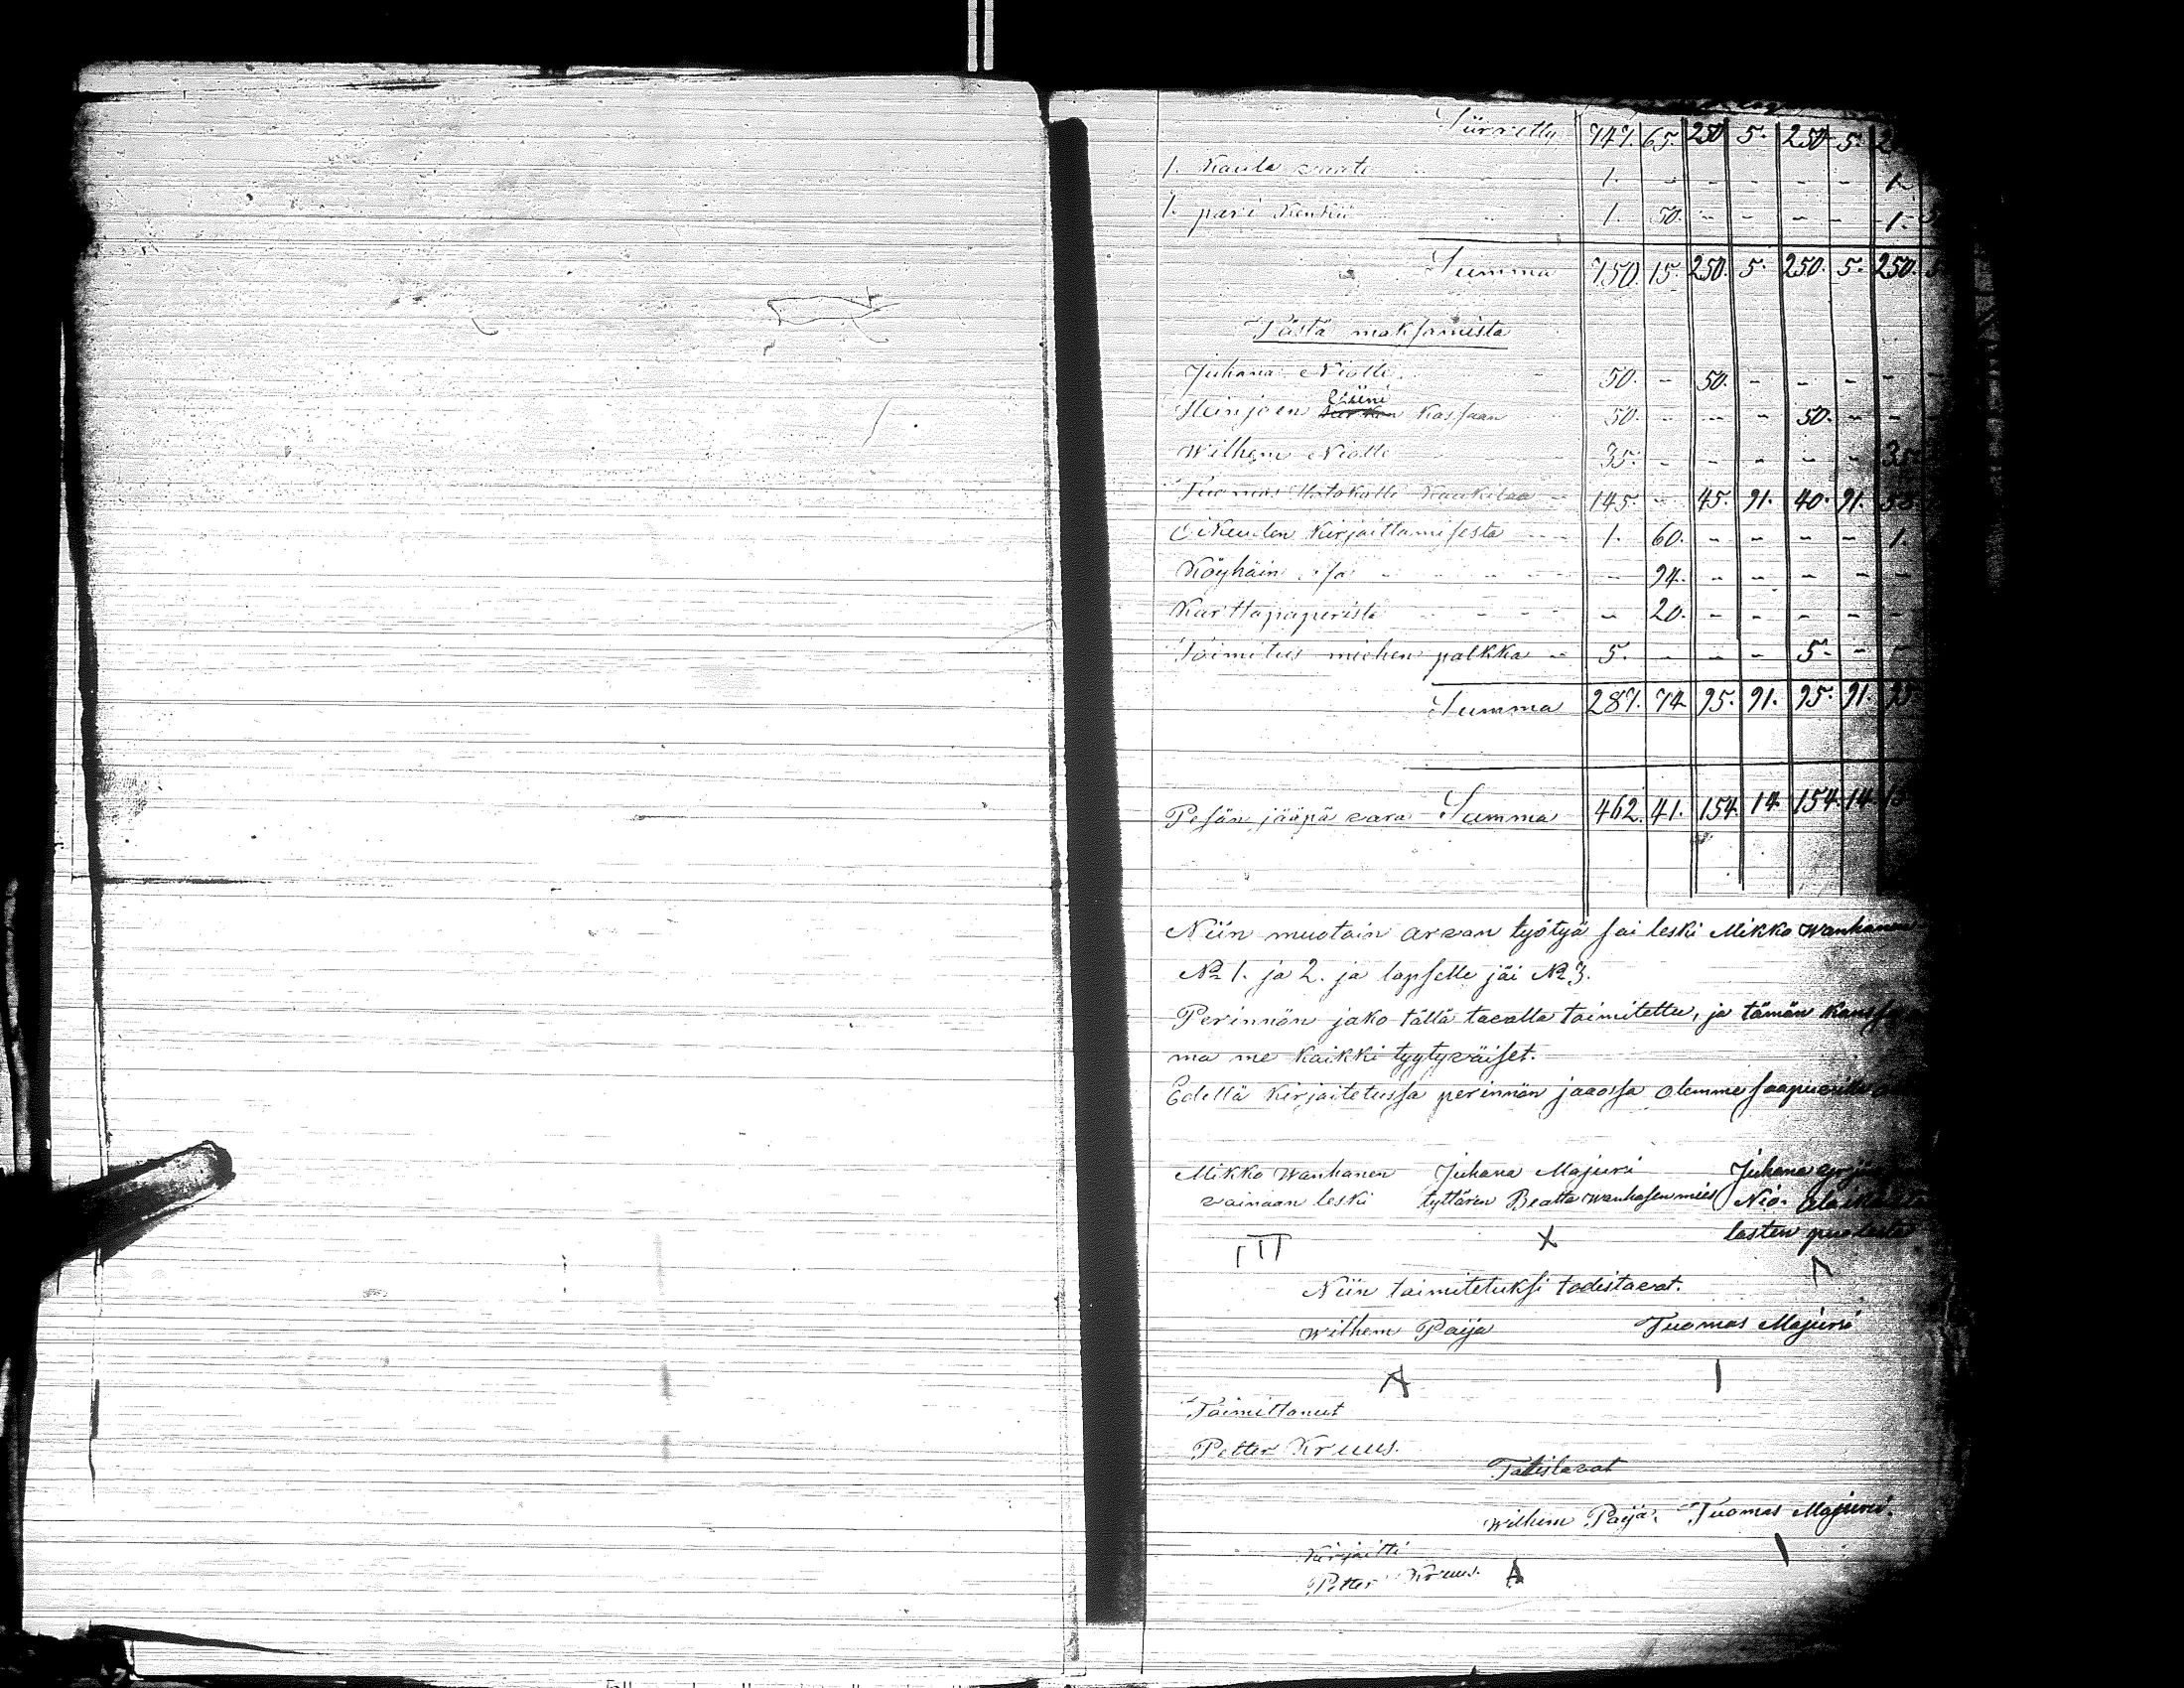 Siirretty 747. 65. 250 5. 250 5.
1. Kaula vaate 1. - - - - - 1.-
1. pari Kenkiä 1. 50. - - - - 1.-
Summa 750. 15. 250. 5. 250. 5. 250.
Tästä maksamista
Juhana Niölle 50. - 50. - - - -
Heinjoen Liini kassaan 50. - - - 50. - -
Wilhem Niölle 35. - - - - - 35
Tuomas 145. - 45. 91. 40. 91.
Oikeuden Kirjaittamisesta 1. 60. - - - - 1.
Köyhäin - 94. - - - - -
Karttapaperista - 20. - - - - -
Toimitus miehen palkka - 5. - - - 5. - -
Summa 287. 74 95. 91. 95. 91. 95
Pesän jääpä vara Summa 462. 41. 154. 14 154. 14
Niin muotoin arvan työtyä sai leski Mikko Wanhanen
No 1. ja 2. ja lapselle jäi No 3.
Perinnön jako tällä tavalla toimitettu, ja tämän kanssa
ma me kaikki tyytyväiset.
Edellä Kirjaitetussa perinnön jaaossa olemme saapuvilla
Mikko Wanhanen Juhana Majuri Juhana
vainaan leski tyttären Beatta Wanhasen mies Niö.
lasten puolesta
X
Niin toimitetuksi todistavat.
Wilhem Paija Tuomas Majuri
A I
Toimittanut
Petter Kruus.
Todistavat
Wilhem Paija. Tuomas Majuri.
Kirjaitti
Petter Kruus. A